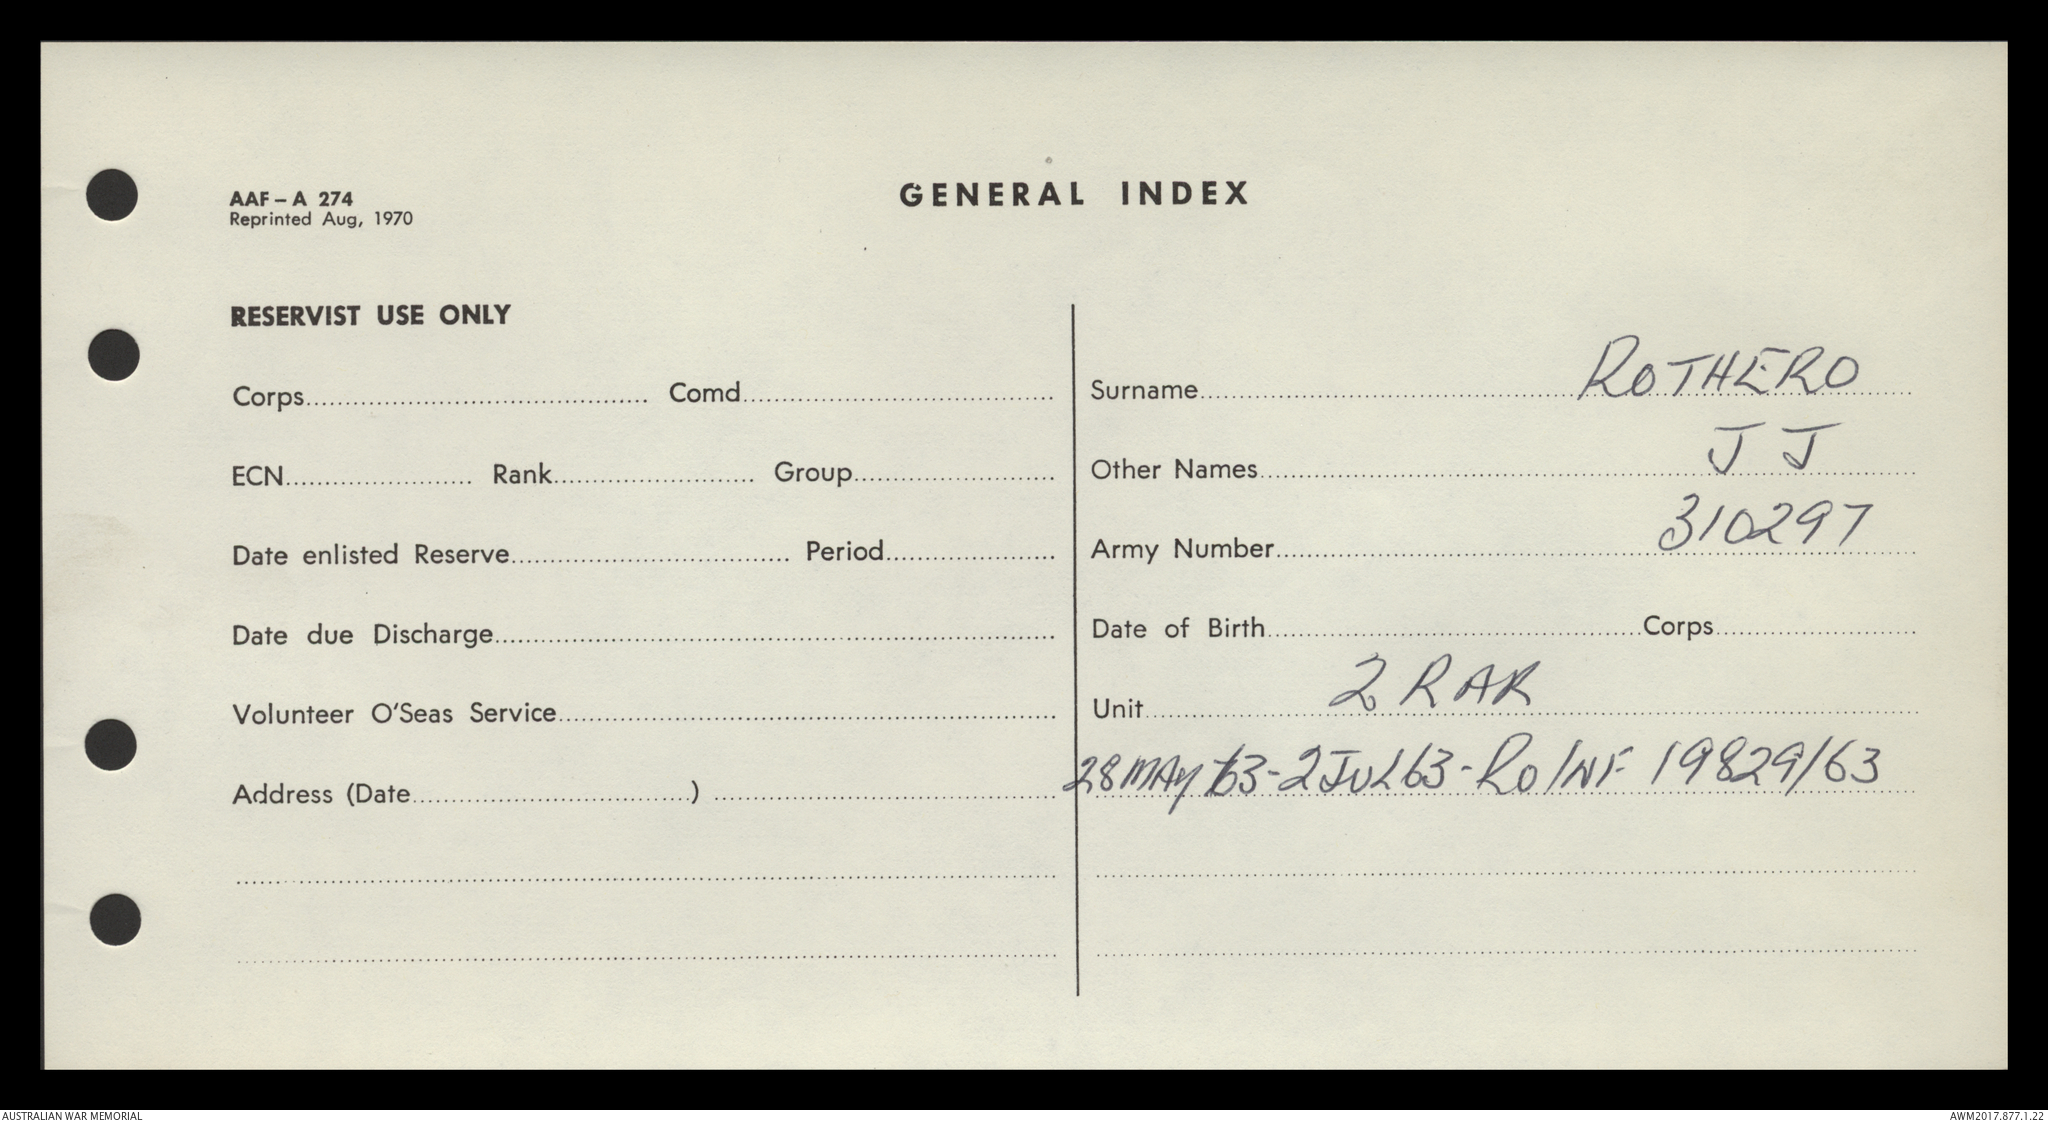 AAF – A 274
Reprinted Aug, 1970
GENERAL INDEX
RESERVIST USE ONLY
Corps Comd
ECN Rank Group
Date enlisted Reserve Period
Date due Discharge
Volunteer O'Seas Service
Address (Date )
Surname ROTHERO
Other Names J J
Army Number 310297
Date of Birth Corps
Unit 2 RAR
28 MAY 63 - 2 JUL 63 - RO/INF 19829/63
AUSTRALIAN WAR MEMORIAL
AWM2017.877.1.22